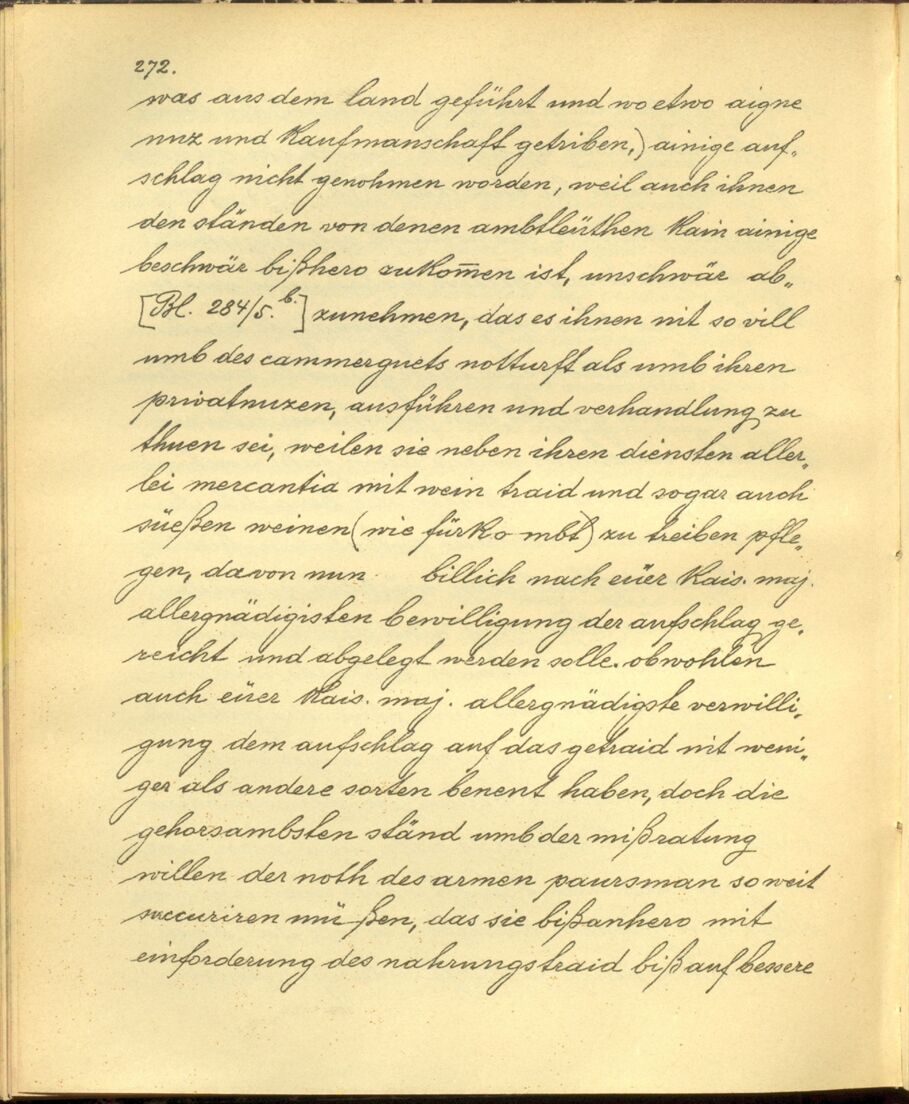 272.
was aus dem land geführt und wo etwo aigne
nuz und Kaufmanschaft getriben,) ainige auf„
schlag nicht genohmen worden, weil auch ihnen
den ständen von denen ambtleüthen Kain ainige
beschwär bißhero zukom̅en ist, unschwär ab„
[Bl. 284/5.b.] zunehmen, das es ihnen nit so vill
umb des cammerguets notturft als umb ihren
privatnuzen, ausführen und verhandlung zu
thuen sei, weilen sie neben ihren diensten aller„
lei mercantia mit wein traid und sogar auch
süeßen weinen (wie fürkombt) zu treiben pfle„
gen, davon nun billich nach eüer Kais. maj.
allergnädigisten bewilligung der aufschlag ge„
reicht und abgelegt werden solle. obwohlen
auch eüer Kais. maj. allergnädigste verwilli„
gung dem aufschlag auf das getraid nit weni„
ger als andere sorten benent haben, doch die
gehorsambsten ständ umb der mißratung
willen der noth des armen paursman so weit
succuriren müßen, das sie bißanhero mit
einforderung des nahrungstraid biß auf bessere